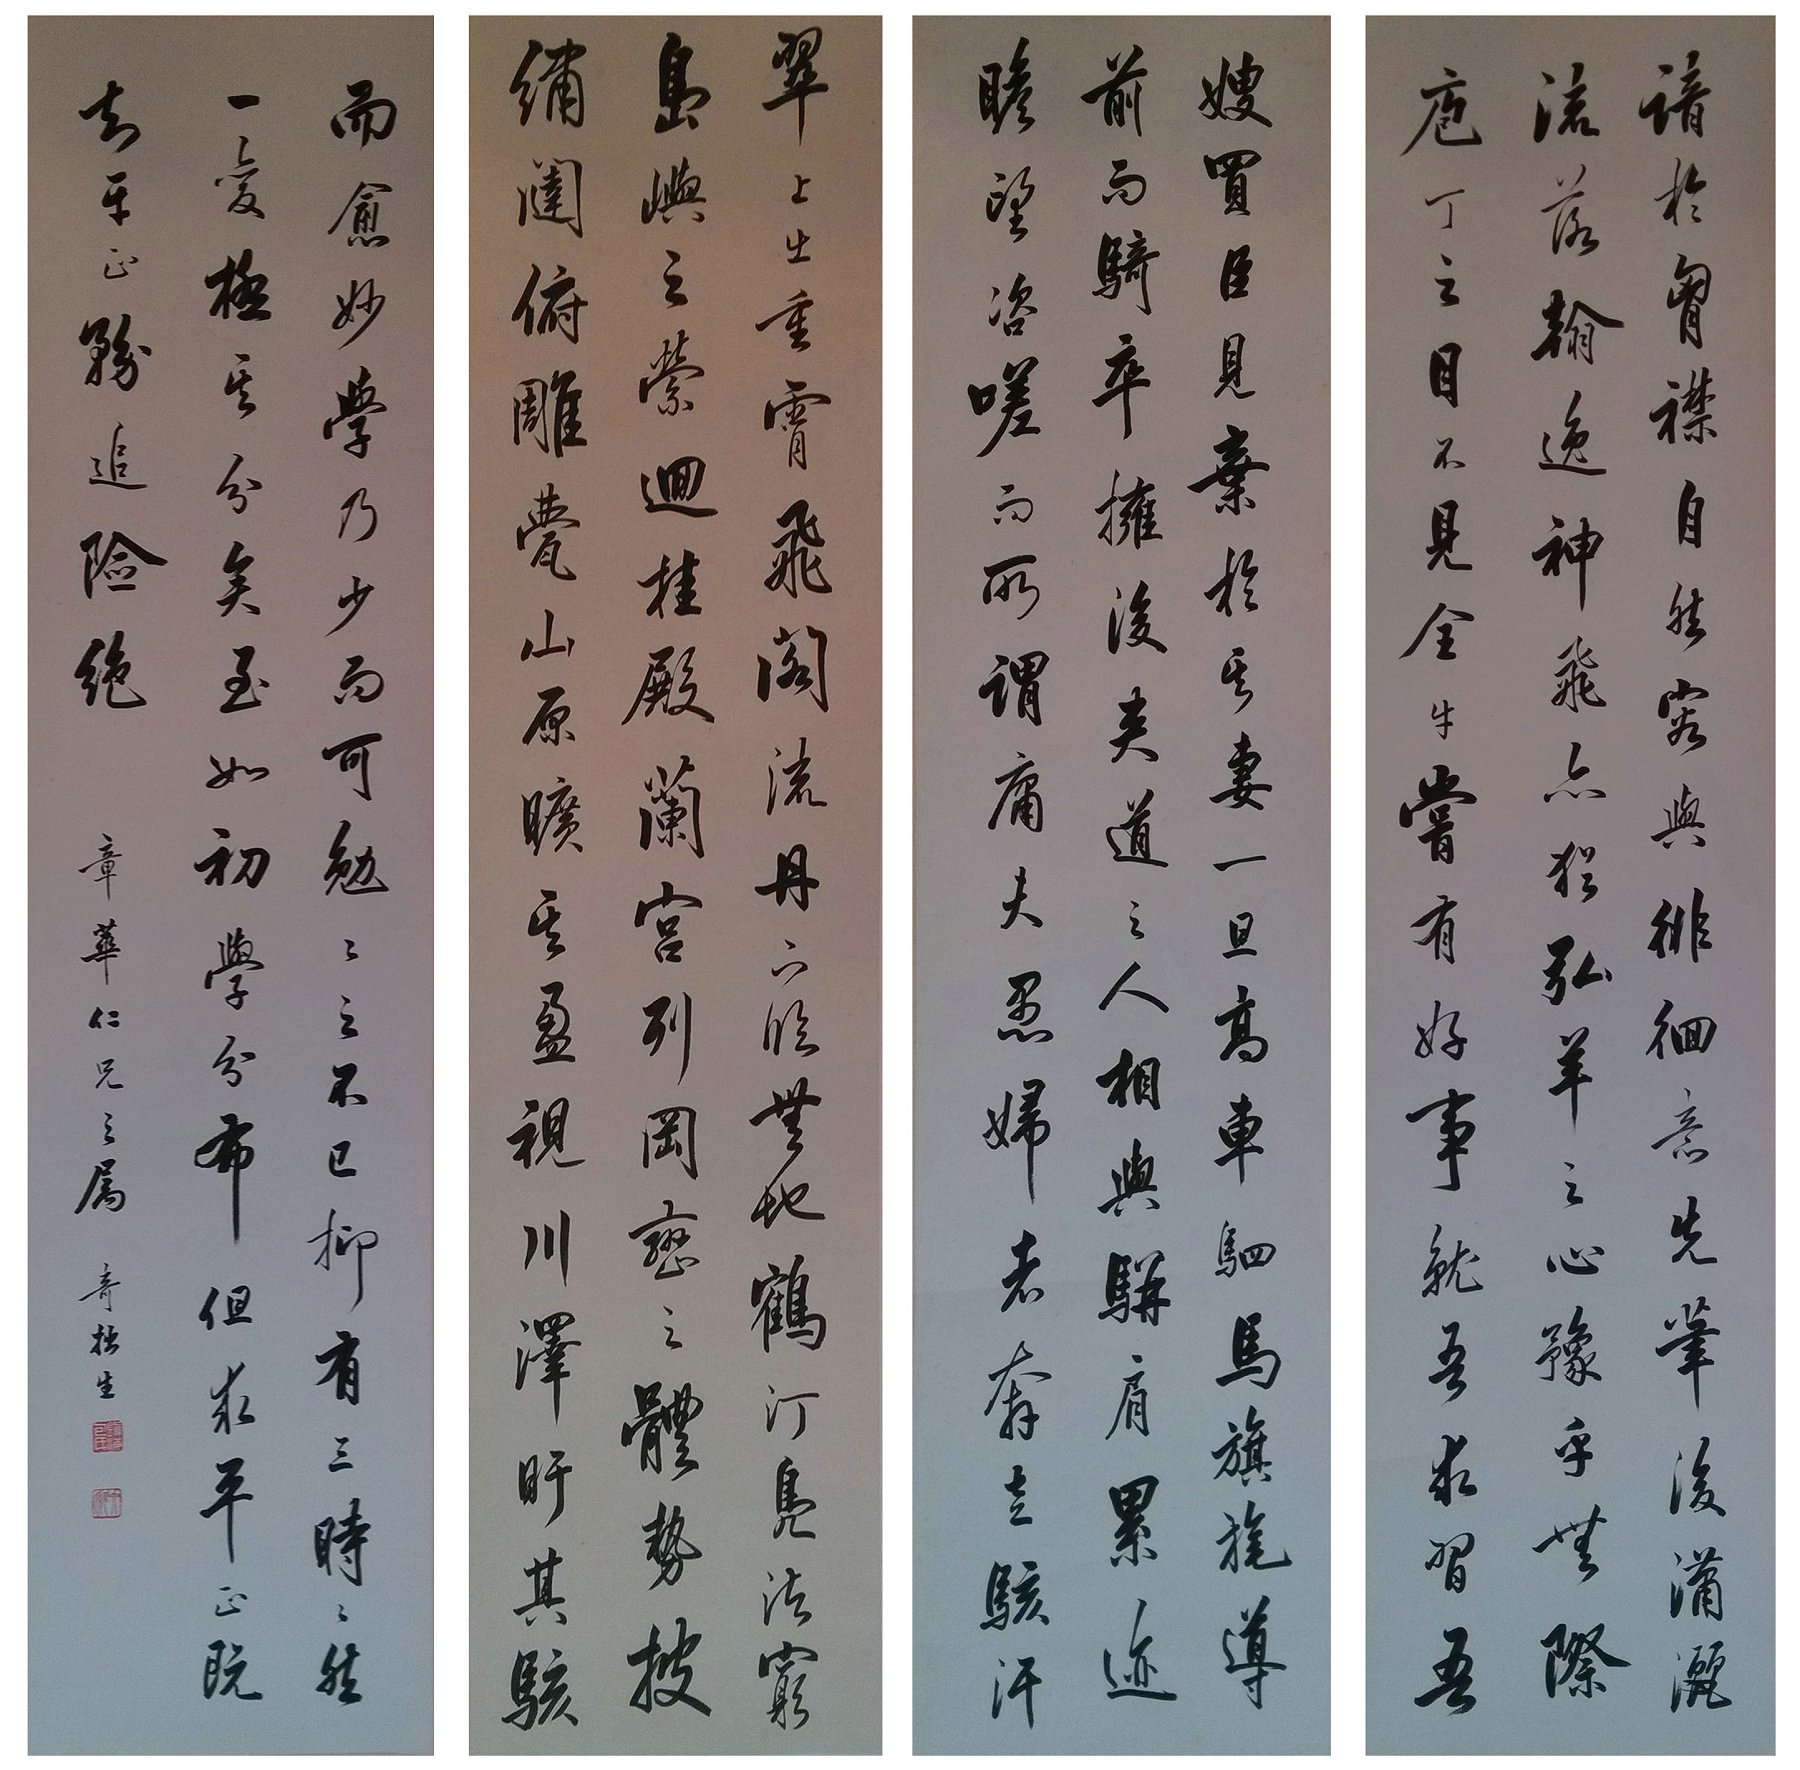 諳於胷襟自然容與徘徊意先筆後瀟灑
流落翰逸神飛亦猶弘羊之心豫乎無際
庖丁之目不見全牛嘗有好事就吾求習吾
嫂買臣見棄於其妻一旦高車駟馬旗旄導
前而騎卒擁後夹道之人相與駢肩累迹
瞻望咨嗟而所謂庸夫愚婦者奔走駭汗
翠上出重霄飛閣流丹下臨無地鶴汀鳧渚窮
島嶼之縈迴桂殿蘭宮列岡巒之體勢披
繡闥俯雕甍山原曠其盈視川澤盱其駭
而愈妙學乃少而可勉勉之不已抑有三時時然
一變極其分矣至如初學分布但求平正既
知平正務追險絶
章華仁兄之屬 奇拙生